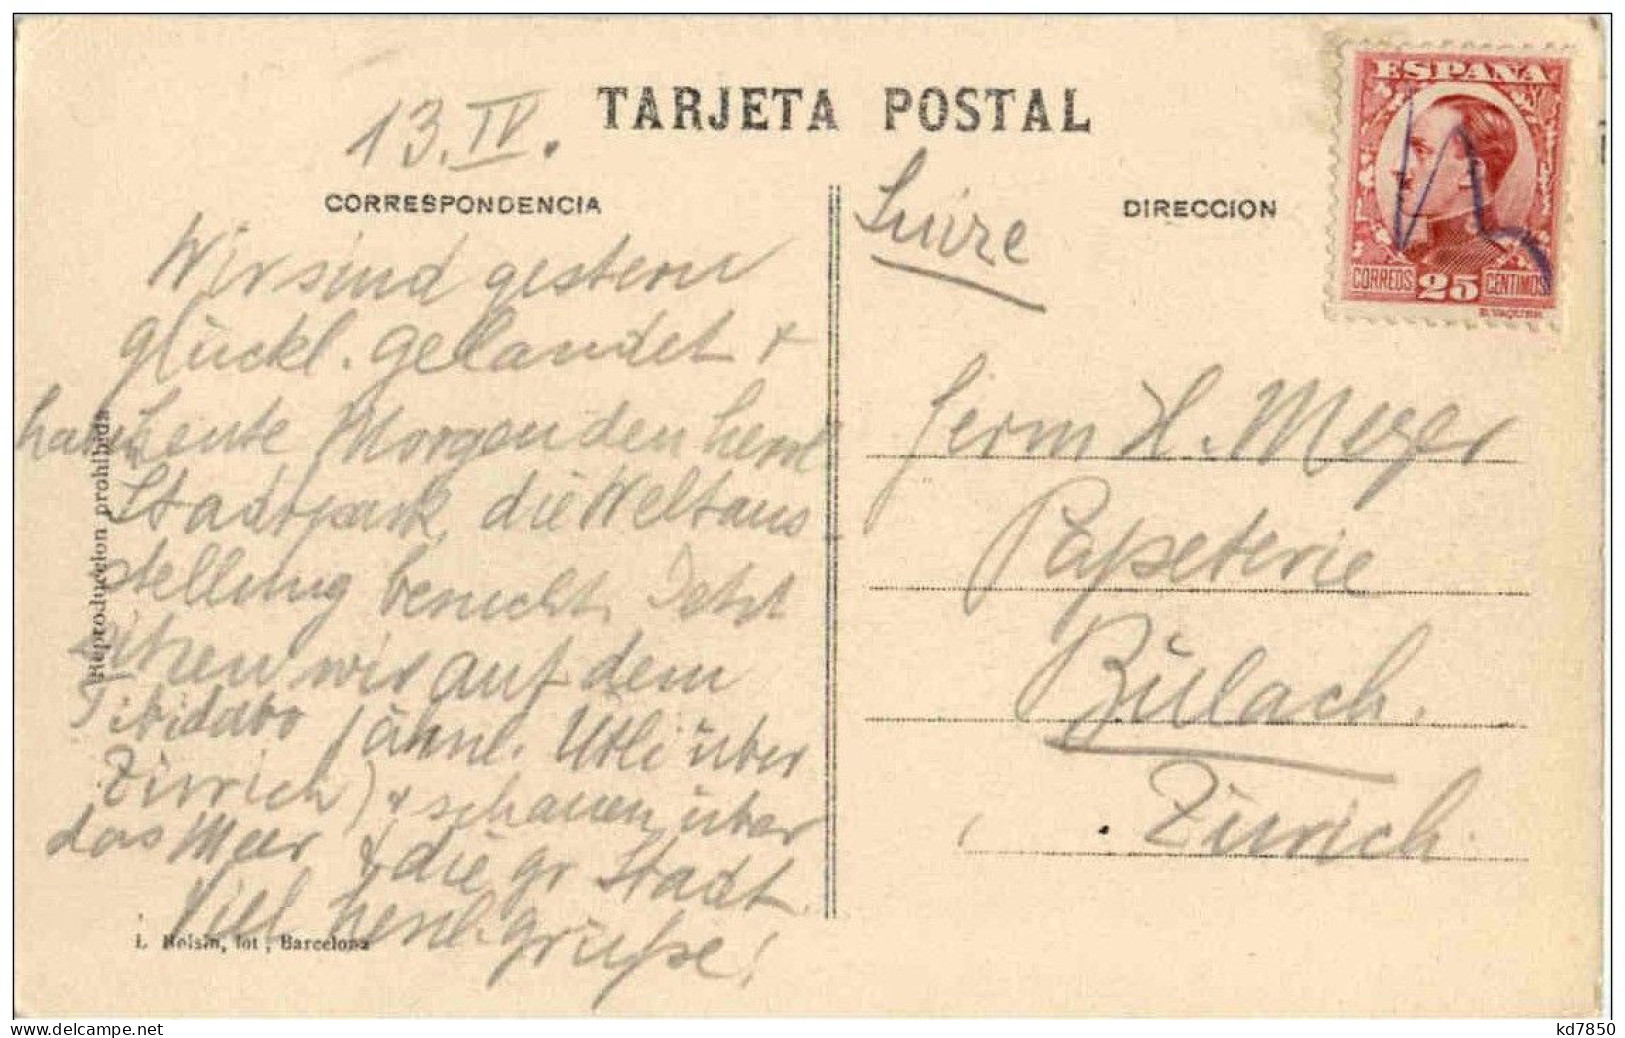 TARJETA POSTAL
13. IV.
CORRESPONDENCIA
Wir sind gestern
glückl. gelandet +
heute Morgen den herrl
Stadtpark, die Weltaus
stellung besucht. Jetzt
sitzen wir auf dem
Tibidabo (ähnl. Ütli über
Zürich) + schauen über
das Meer + die gr Stadt.
Viel herzl. Grüße!
Reproduccion prohibida
L. Roisin, fot, Barcelona
DIRECCION
Suize
Firma H. Meyer
Papeterie
Bülach.
Zürich.
ESPAÑA
CORREOS 25 CENTIMOS
E. VAQUER
delcampe.net
kd7850